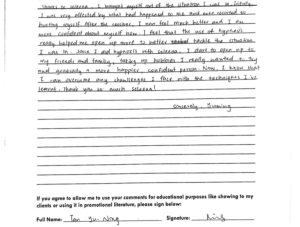 thanks to selena. I brought myself out of the situation I was in
I was very affected by what had happened to me and even resorted to
hurting myself. After the sessions, I now feel much better and I am
more confident about myself now. I feel that the use of hypnosis
really helped me open up more to better tackle the situation
I was in. Since I did hypnosis with selena, I start to open up to
my friends and family, taking up hobbies I really wanted to try
and generally a more happier, confident person. Now, I know that
I can overcome any challenges I face with the techniques I've
learnt. Thank you so much selena!
Sincerely,
If you agree to allow me to use your comments for educational purposes like showing to my
clients or using it in promotional literature, please sign below:
Full Name: Tan Signature: